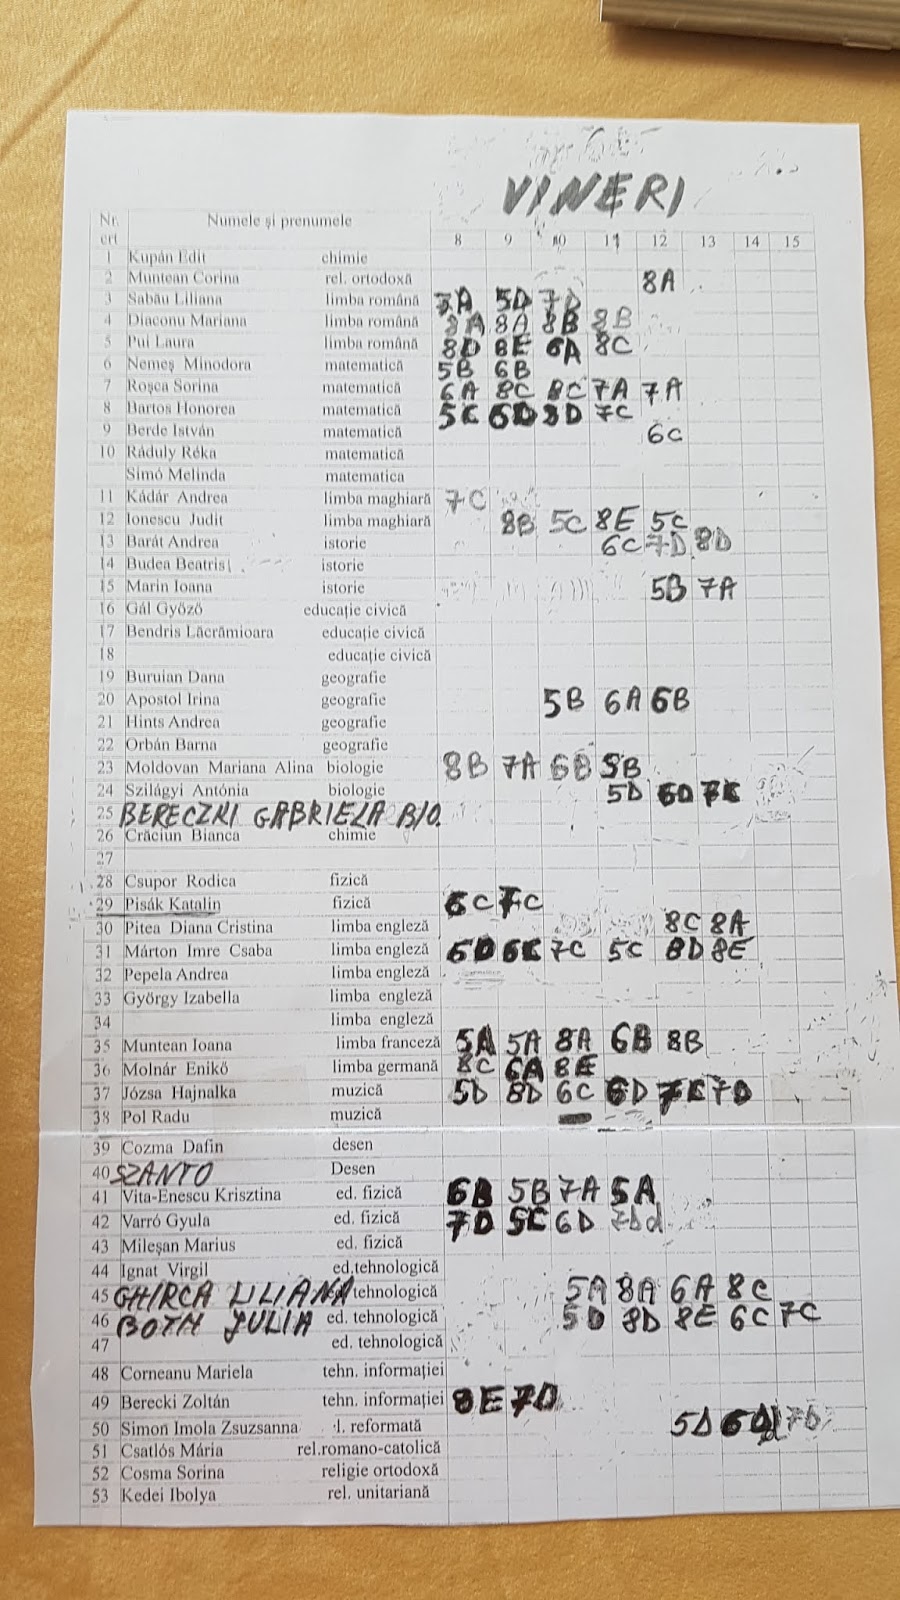 VINERI
Nr. crt Numele și prenumele 8 9 10 11 12 13 14 15
1 Kupán Edit chimie
2 Muntean Corina rel. ortodoxă 8A
3 Sabău Liliana limba română 7A 5D 7D
4 Diaconu Mariana limba română 8A 8A 8B 8B
5 Pui Laura limba română 8D 8E 6A 8C
6 Nemeș Minodora matematică 5B 6B
7 Roșca Sorina matematică 6A 8C 8C 7A 7A
8 Bartos Honorea matematică 5C 6D 8D 7C
9 Berde István matematică 6C
10 Ráduly Réka matematică
Simó Melinda matematica
11 Kádár Andrea limba maghiară 7C
12 Ionescu Judit limba maghiară 8B 5C 8E 5C
13 Barát Andrea istorie 6C 7D 8D
14 Budea Beatris istorie
15 Marin Ioana istorie 5B 7A
16 Gál Győző educație civică
17 Bendris Lăcrămioara educație civică
18 educație civică
19 Buruian Dana geografie
20 Apostol Irina geografie 5B 6A 6B
21 Hints Andrea geografie
22 Orbán Barna geografie
23 Moldovan Mariana Alina biologie 8B 7A 6B 5B
24 Szilágyi Antónia biologie 5D 6D 7C
25 BERECZKI GABRIELA BIO.
26 Crăciun Bianca chimie
27
28 Csupor Rodica fizică
29 Pisák Katalin fizică 6C 7C
30 Pitea Diana Cristina limba engleză 8C 8A
31 Márton Imre Csaba limba engleză 6D 6C 7C 5C 8D 8E
32 Pepela Andrea limba engleză
33 György Izabella limba engleză
34 limba engleză
35 Muntean Ioana limba franceză 5A 5A 8A 6B 8B
36 Molnár Enikő limba germană 8C 6A 8E
37 Józsa Hajnalka muzică 5D 8D 6C 6D 7C 7D
38 Pol Radu muzică
39 Cozma Dafin desen
40 SZANTO Desen
41 Vita-Enescu Krisztina ed. fizică 6B 5B 7A 5A
42 Varró Gyula ed. fizică 7D 5C 6D 7D d
43 Mileșan Marius ed. fizică
44 Ignat Virgil ed.tehnologică
45 GHIRCA LILIANA tehnologică 5A 8A 6A 8C
46 BOTH JULIA ed. tehnologică 5D 8D 8E 6C 7C
47 ed. tehnologică
48 Corneanu Mariela tehn. informației
49 Berecki Zoltán tehn. informației 8E 7D
50 Simon Imola Zsuzsanna l. reformată 5D 6D 7D
51 Csatlós Mária rel.romano-catolică
52 Cosma Sorina religie ortodoxă
53 Kedei Ibolya rel. unitariană